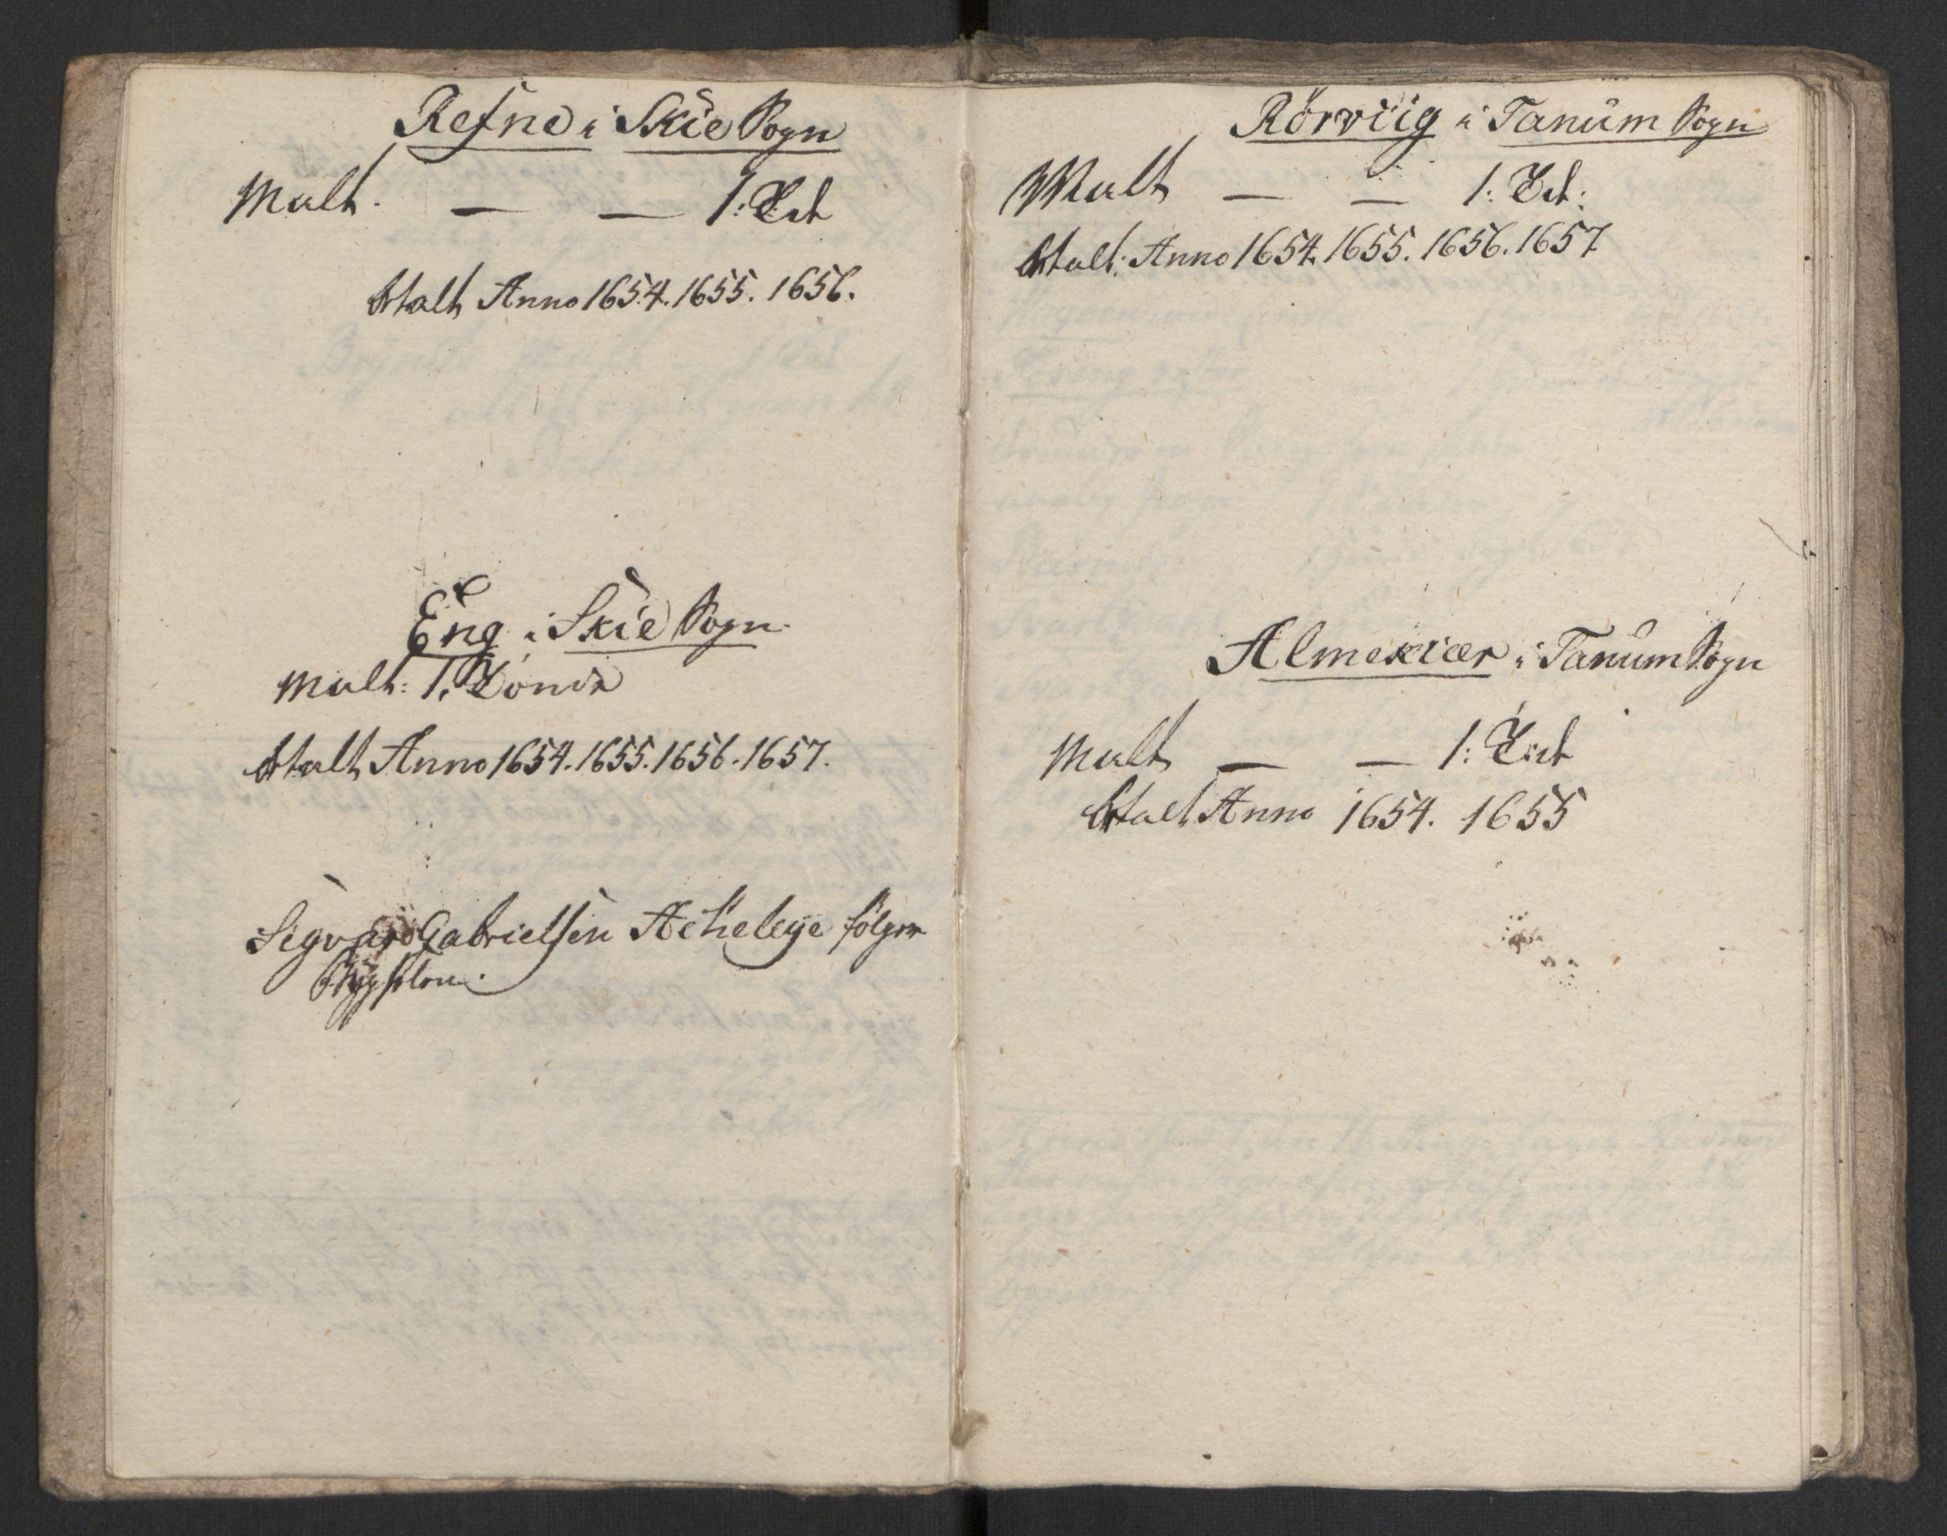 Refne i Skie Sogn
Malt. — — 1. Td
btalt Anno 1654. 1655. 1656.
Eng i Skie Sogn.
Malt: 1. Tønde
btalt Anno 1654. 1655. 1656. 1657.
Sigvard Gabrielsen Acheleye følger
Bygselen.
Rörviig i Tanum Sogn
Malt — — 1: Td:
btalt: Anno 1654. 1655. 1656. 1657
Almekiær i Tanum Sogn
Malt — — 1: Td
btalt Anno 1654. 1655